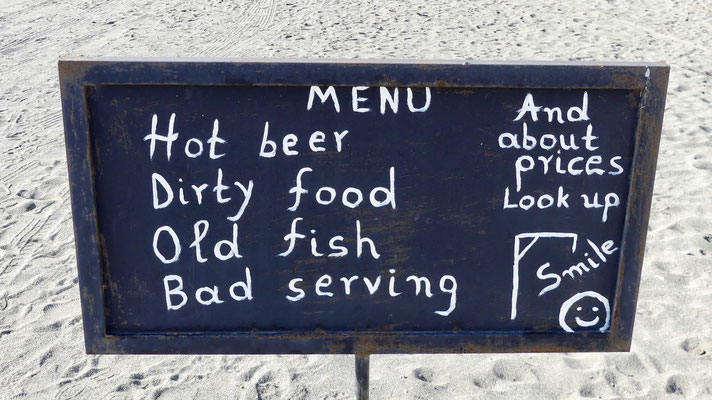 MENU
Hot beer
Dirty food
Old fish
Bad serving
And
about
prices
Look up
Smile